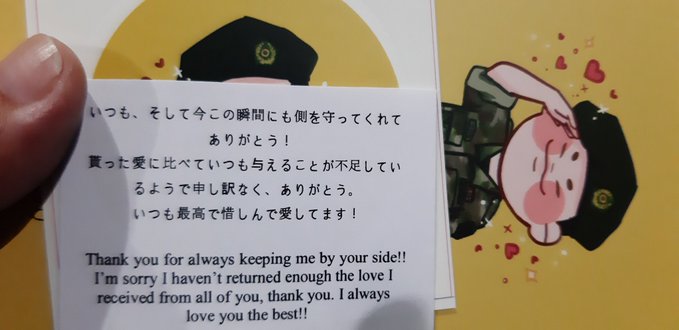 いつも、そして今この瞬間にも側を守ってくれて
ありがとう！
貰った愛に比べていつも与えることが不足してい
るようで申し訳なく、ありがとう。
いつも最高で惜しんで愛してます！
Thank you for always keeping me by your side!!
I'm sorry I haven't returned enough the love I
received from all of you, thank you. I always
love you the best!!